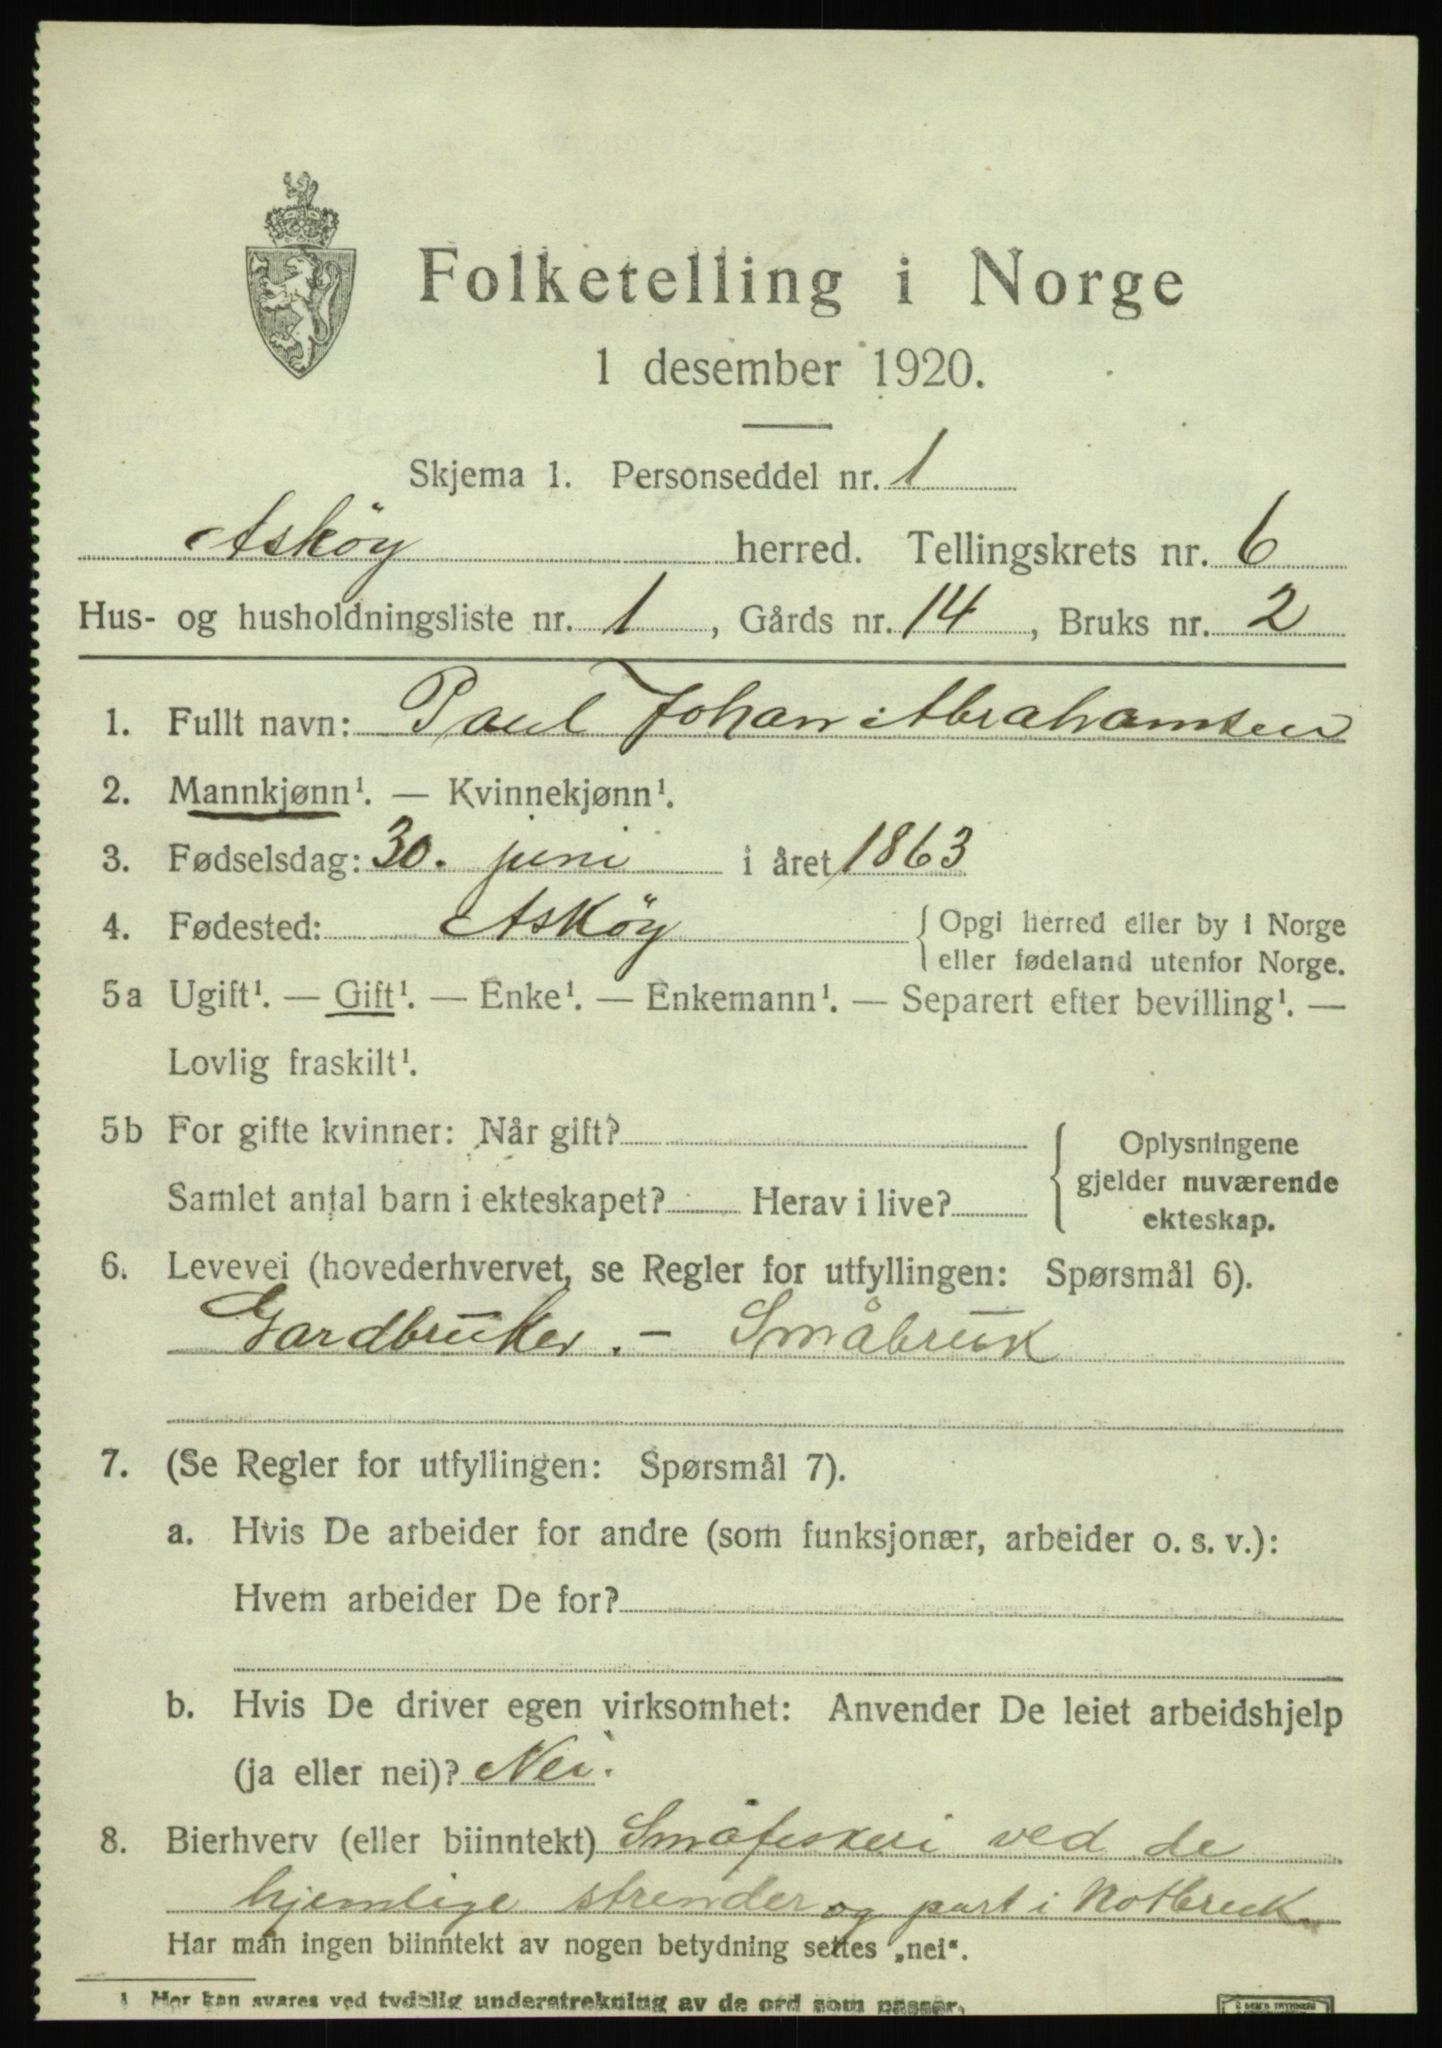 Folketelling i Norge
1 desember 1920.
Skjema 1. Personseddel nr. 1
Asköy herred. Tellingskrets nr. 6
Hus- og husholdningsliste nr. 1, Gårds nr. 14, Bruks nr. 2
1. Fullt navn: Paul Johan Abrahamsen
2. Mannkjønn¹. — Kvinnekjønn¹.
3. Fødselsdag: 30. juni i året 1863
4. Fødested: Asköy { Opgi herred eller by i Norge
eller fødeland utenfor Norge.
5a Ugift¹. — Gift¹. — Enke¹. — Enkemann¹. — Separert efter bevilling¹. —
Lovlig fraskilt¹.
5b For gifte kvinner: Når gift?
Samlet antal barn i ekteskapet? Herav i live?
{ Oplysningene
gjelder nuværende
ekteskap.
6. Levevei (hovederhvervet, se Regler for utfyllingen: Spørsmål 6).
Gardbruker. – Småbruk
7. (Se Regler for utfyllingen: Spørsmål 7).
a. Hvis De arbeider for andre (som funksjonær, arbeider o. s. v.):
Hvem arbeider De for?
b. Hvis De driver egen virksomhet: Anvender De leiet arbeidshjelp
(ja eller nei)? Nei.
8. Bierhverv (eller biinntekt) Småfiskeri ved de
hjemlige strender og part i Notbruk
Har man ingen biinntekt av nogen betydning settes „nei“.
1 Her kan svares ved tydelig understrekning av de ord som passer.